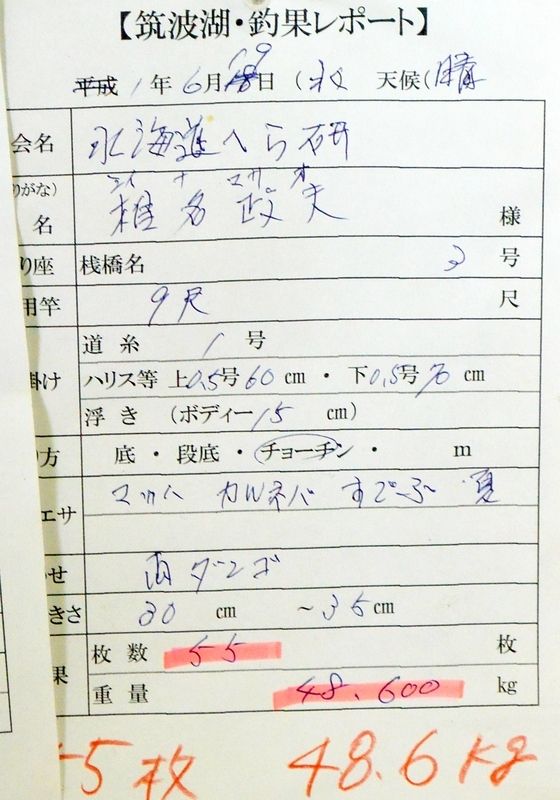 【筑波湖・釣果レポート】
平成 1年 6月19日（水 天候（晴
会名 北海道へら研
りがな） シイ ナ マサ オ
名 椎名政夫 様
り座 桟橋名 3 号
用竿 9尺 尺
道糸 1 号
掛け ハリス等 上0.5号60cm・下0.5号70cm
浮き （ボディー15 cm）
り方 底・段底・チョーチン・ m
エサ マッハ カルネバ すごーぶ 夏
わせ 両ダンゴ
きさ 30 cm ～35cm
枚数 55 枚
果
重量 48.600 kg
5枚 48.6kg